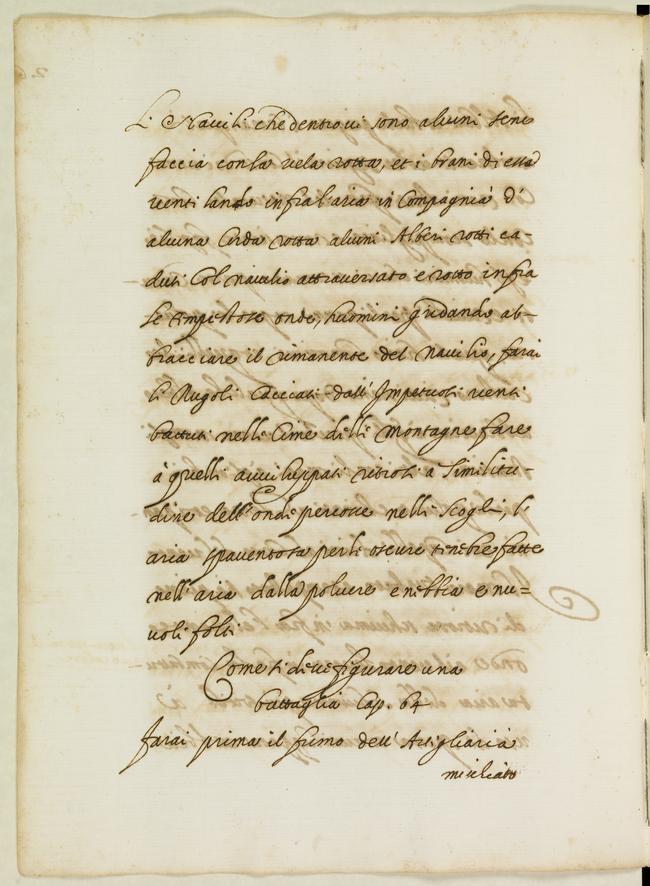 Li Nauili che dentro ui sono alcuni sene
faccia con la uela rotta, et i brani di essa
uentilando infra l'aria in Compagnia d'
alcuna Corda rotta alcuni Alberi rotti ca-
duti Col nauilio attrauersato e rotto infra
le tempestose onde, huomini gridando ab-
bracciare il rimanente del nauilio, farai
li Nugoli Cacciati dall'Impetuosi uenti
battuti nelle Cime delle montagne fare
à quelli auuiluppati ritrosi a similitu-
dine dell'onde percosse nelli scogli, l'
aria spauentosa per le oscure tenebre fatte
nell'aria dalla poluere e nebbia e nu=
uoli folti
Come si deue figurare una
battaglia Cap. 64
Farai prima il fumo dell'Artigliaria
misciato